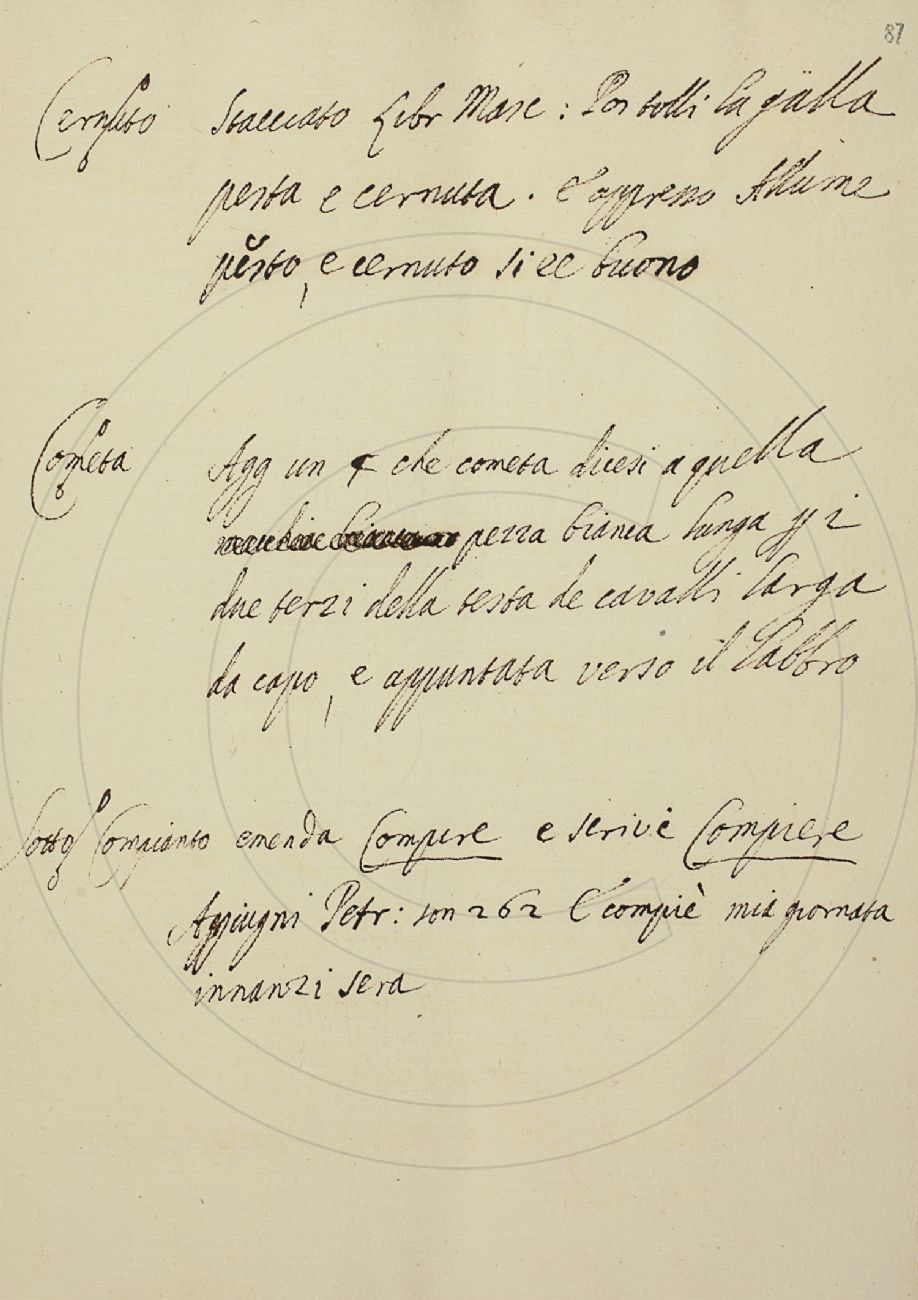 87
Cernuto Stacciato Libr Masc: Poi tolli la galla
pesta e cernuta. E appresso Allume
pesto, e cernuto si ee buono
Cometa Agg un § che cometa dicesi a quella
pezza bianca lunga pp i
due terzi della testa de cavalli larga
da capo, e appuntata verso il labbro
Sotto Compianto emenda Compire e scrive Compiere
Aggiugni Petr: son 262 E compiè mia giornata
innanzi sera